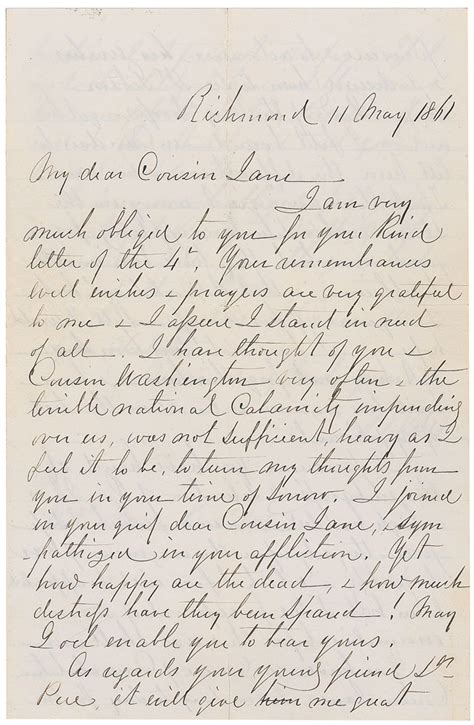 Richmond 11 May 1861
My dear Cousin Jane
I am very
much obliged to you for your kind
letter of the 4th. Your remembrances
well wishes & prayers are very grateful
to me & I assure I stand in need
of all. I have thought of you &
Cousin Washington very often & the
terrible national Calamity impending
over us, was not sufficient, heavy as I
feel it to be, to turn my thoughts from
you in your time of sorrow. I joined
in your grief dear Cousin Jane, & sym
pathized in your affliction. Yet
how happy are the dead, & how much
distress have they been spared! May
God enable you to bear yours.
As regards your young friend
it will give him me great